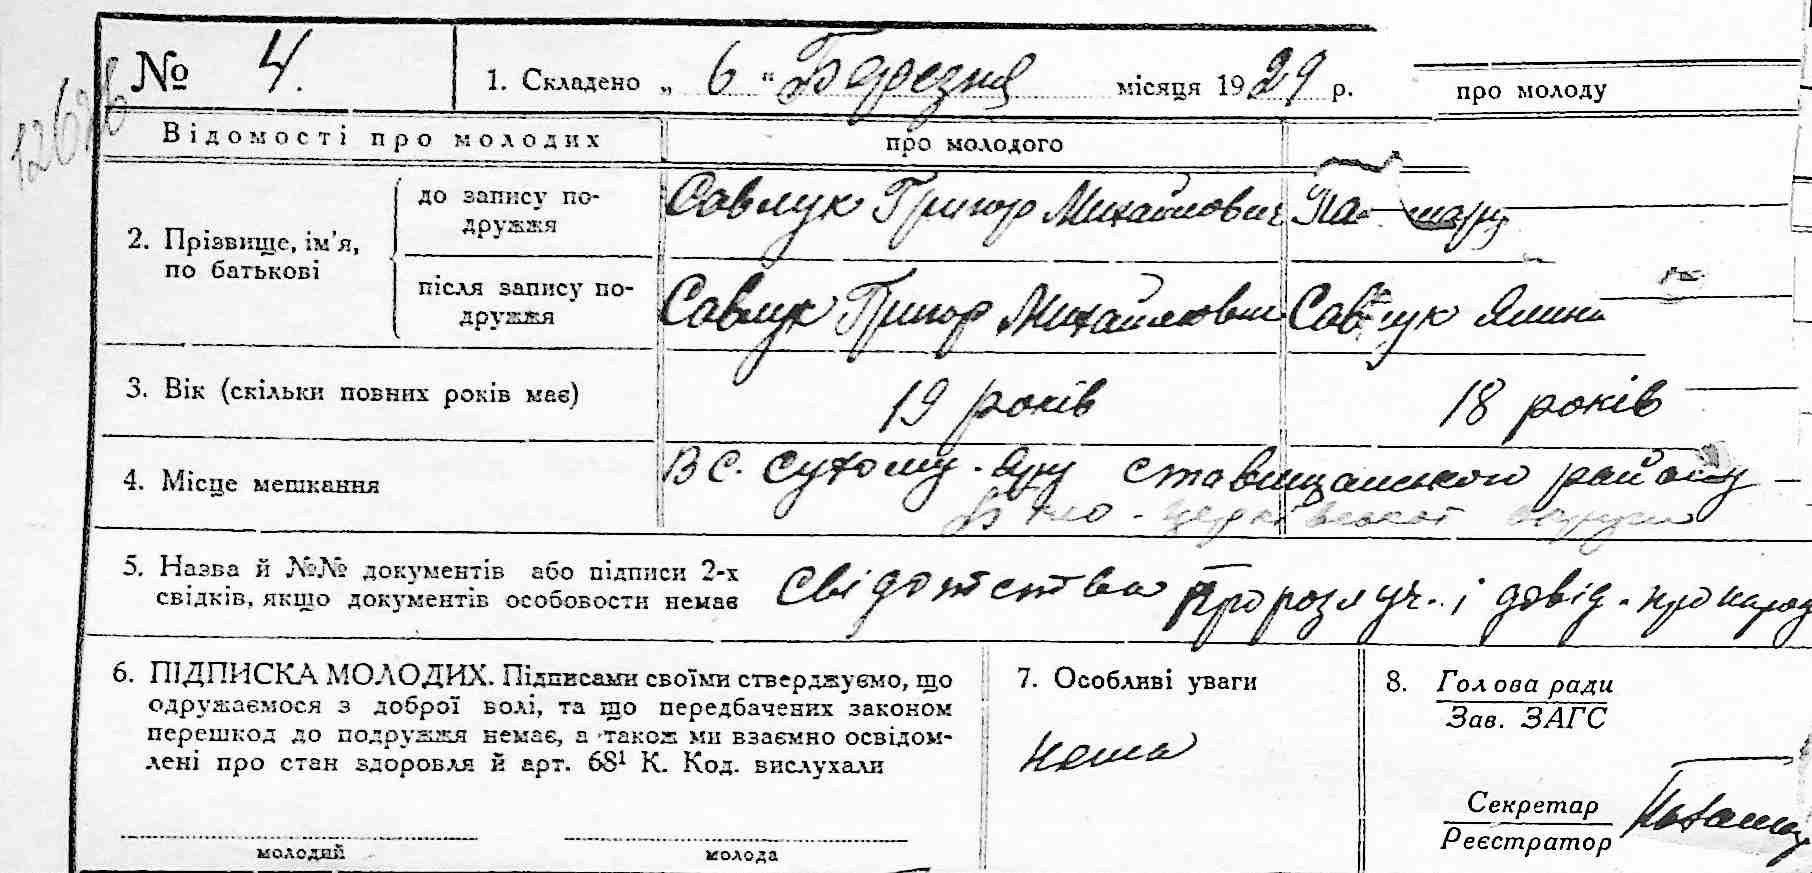 № 4. 1. Складено „ 6 “ Березня місяця 1929 р. про молоду
Відомості про молодих про молодого
2. Прізвище, ім’я, по батькові
до запису по-
дружжя
Савлук Григор Михайлович
після запису по-
дружжя
Савлук Григор Михайлович Савлук Ялина
3. Вік (скільки повних років має) 19 років 18 років
4. Місце мешкання В с. Сухому-Яру Ставищанського району
Біло-Церківської округи
5. Назва й №№ документів або підписи 2-х
свідків, якщо документів особовости немає
Свідотства про розлуч. і довід. про народ
6. ПІДПИСКА МОЛОДИХ. Підписами своїми стверджуємо, що
одружаємося з доброї волі, та що передбачених законом
перешкод до подружжя немає, а також ми взаємно освідом-
лені про стан здоровля й арт. 68¹ К. Код. вислухали
молодий молода
7. Особливі уваги
нема
8. Голова ради
Зав. ЗАГС
Секретар
Реєстратор